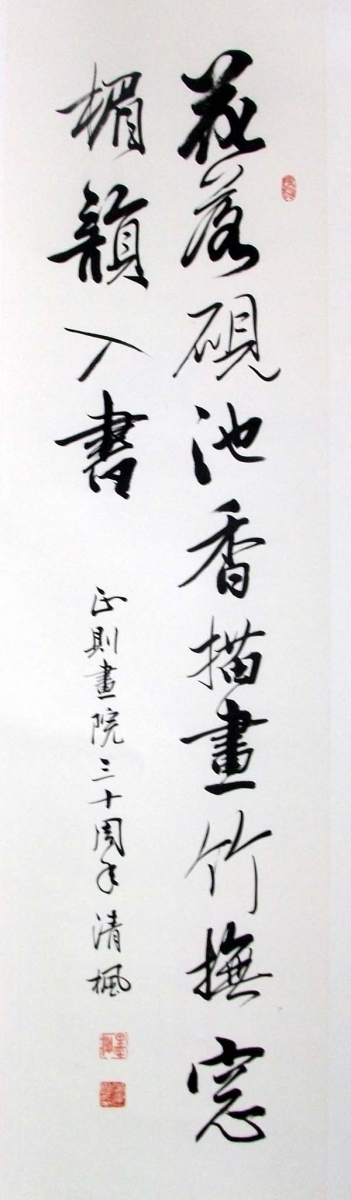 花落硯池香描畫竹撫窓
楣韻入書
正則畫院三十周年 清楓